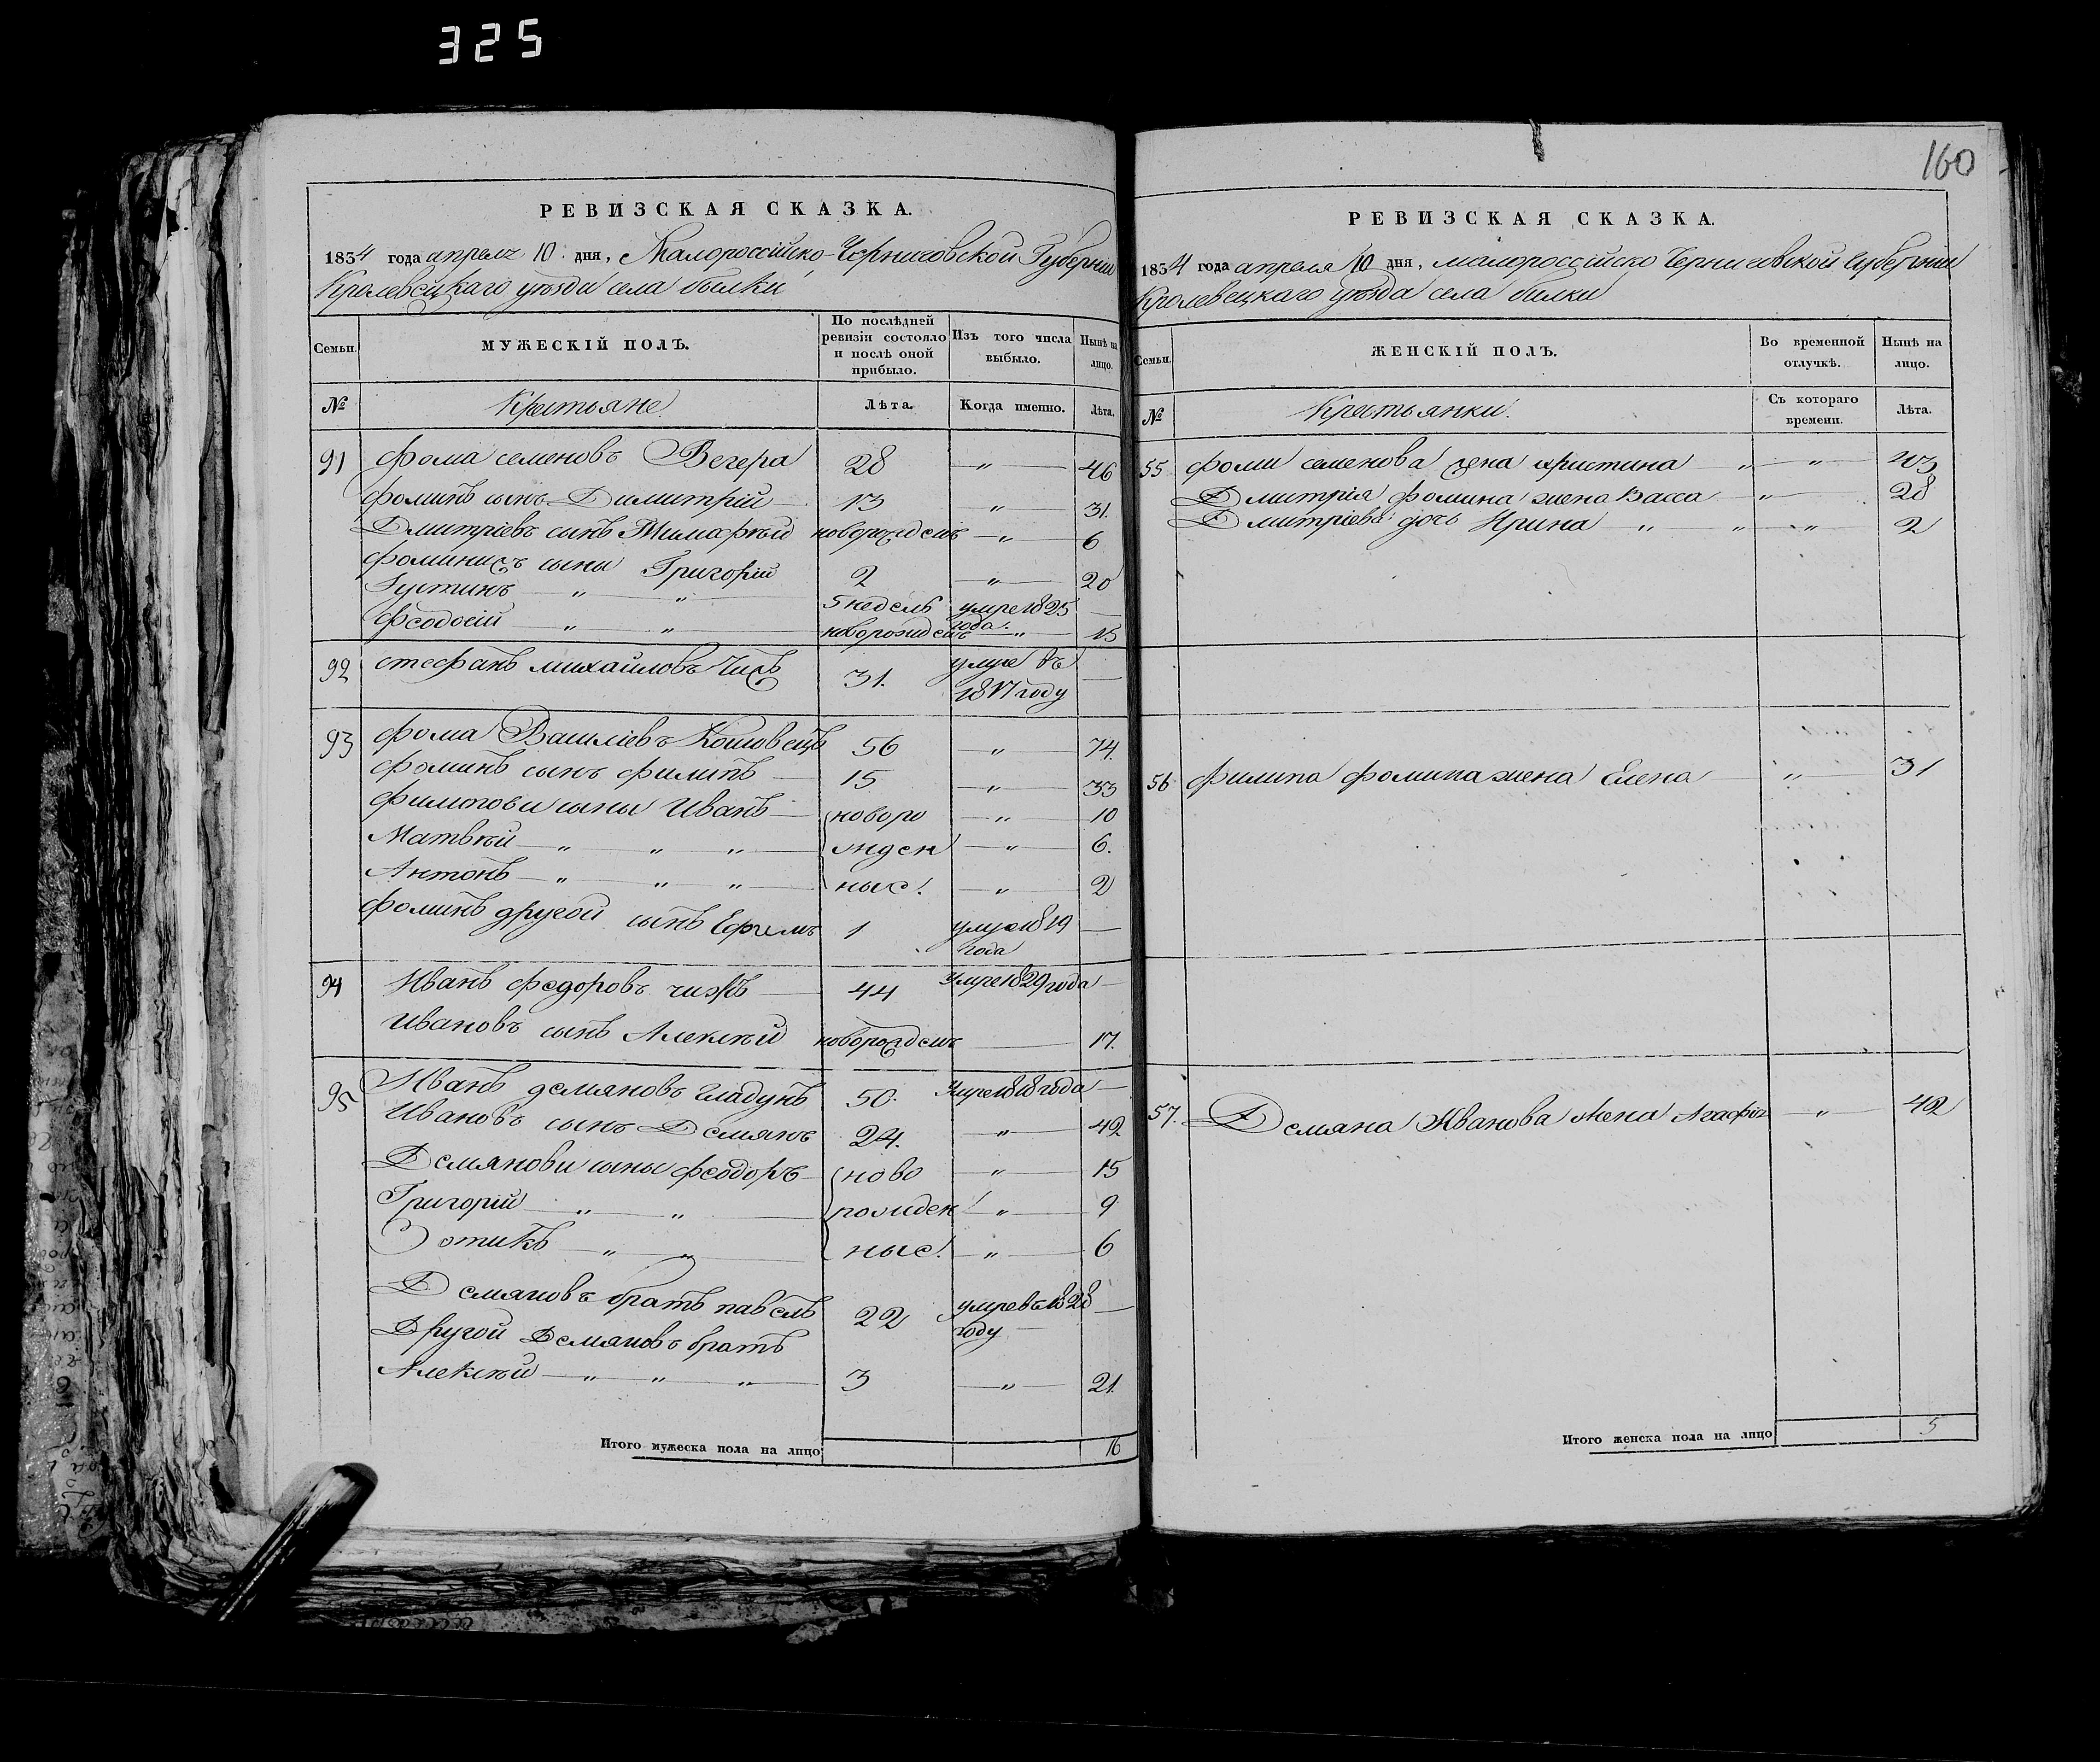 325
РЕВИЗСКАЯ СКАЗКА.
1834 года апреля 10 дня, Малороссійско-Черниговской Губерніи
Кролевецкаго уѣзда села билки
Семьи.
МУЖЕСКІЙ ПОЛЪ.
По послѣдней ревизіи состояло и послѣ оной прибыло.
Изъ того числа выбыло.
Нынѣ на лицо.
№ Крестьяне. Лѣта. Когда именно. Лѣта.
91 Фома семеновъ Вечера 28 — „ — 46
фоминъ сынъ Димитрій 13 „ 31.
Дмитріевъ сынъ Тимофѣй новорожденъ — „ — 6
фоминихъ сыны Григорій 2 — „ — 20
Густинъ — „ „ 5 недель умре 1825 года. —
Феодосій — „ „ новорожденъ — „ — 15
92 стефанъ михайловъ Чижъ 31. умре въ 1817 году —
93 фома Василіевъ Кошовецъ 56 — „ — 74.
фоминъ сынъ филипъ 15 — „ — 33
филипови сыны Иванъ новоро — „ — 10
Матвѣй — „ „ „ жден — „ — 6.
Антонъ — „ „ „ ные! — „ — 2
фоминъ другой сынъ Ефимъ 1 умре 1819 года —
94 Иванъ федоровъ чижъ 44 умре 1829 года —
Ивановъ сынъ Алексѣй новорожденъ — 17.
95 Иванъ демяновъ гладунъ 50. умре 1818 года —
Ивановъ сынъ Демянъ 24. — „ — 42
Демянови сыны феодоръ ново — „ — 15
Григорій — „ „ рожден „ — 9
Фотикъ — „ „ ные! — „ — 6
Демяновъ братъ павелъ 22 умре въ 1828 году —
Другой Демяновъ братъ
Алексѣй — „ „ „ 3 — „ — 21.
Итого мужеска пола на лицо 16
160
РЕВИЗСКАЯ СКАЗКА.
1834 года апреля 10 дня, малороссійско Черниговской губерніи
Кролевецкаго уѣзда села билки
Семьи.
ЖЕНСКІЙ ПОЛЪ.
Во временной отлучкѣ.
Нынѣ на лицо.
№ Крестьянки. Съ котораго времени. Лѣта.
55 фоми семенова жена христина „ „ 43
Дмитрія фомина жена Васса — „ 28
Дмитріева дочь Ирина „ „ „ 2
56 филипа фомина жена Елена „ 31
57. Демяна Иванова жена Агафія — „ — 42
Итого женска пола на лицо 5